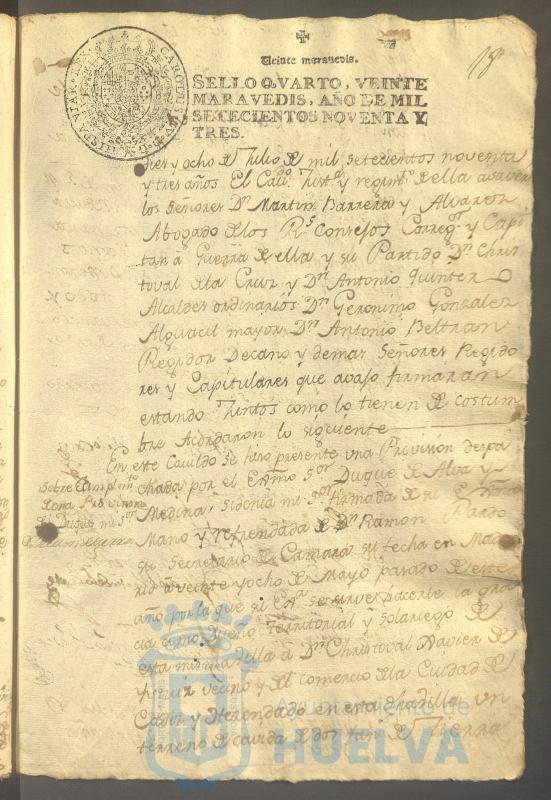 18
Veinte maravedis.
SELLO QVARTO, VEINTE
MARAVEDIS, AÑO DE MIL
SETECIENTOS NOVENTA Y
TRES.
CAROLUS HISPANIAR REX
diez y ocho de Julio de mil setecientos noventa
y tres años. El Cavdo. Justa. y regimto. de ella a saver
los Señores Dn. Martin Barrera y Alvarez
Abogado de los Rs. Consejos Correxor. y Capi
tan a Guerra de ella y su Partido Dn. Chris
toval de la Cruz y Dn. Antonio Quintero
Alcaldes ordinarios Dn. Geronimo Gonzalez
Alguacil mayor Dn. Antonio Beltran
Regidor Decano y demas Señores Regido
res y Capitulares que avajo firmaran
estando Juntos como lo tienen de costum
bre Acordaron lo siguiente
En este Cavildo se hizo presente una Provision despa
Sobre cumplimto.
de una Prov
del Duque mi Sor.
chada por el Exmo. Sor. Duque de Alva y
Medina Sidonia mi Sor. Firmada de su Exma.
Mano y refrendada de Dn. Ramon Pardo
su Secretario de Camara su fecha en Mad
rid a veinte y ocho de Mayo pasado de este
año por la que su Exa. se sirve hacerle la gra
cia como Dueño Territorial y Solariego de
esta mi Villa a Dn. Christoval Xavier de
vecino y del comercio de la Ciudad de
Cadiz y Hazendado en esta dha. villa un
terreno de cavida de dos de Tierra
Ayuntamiento de
HUELVA